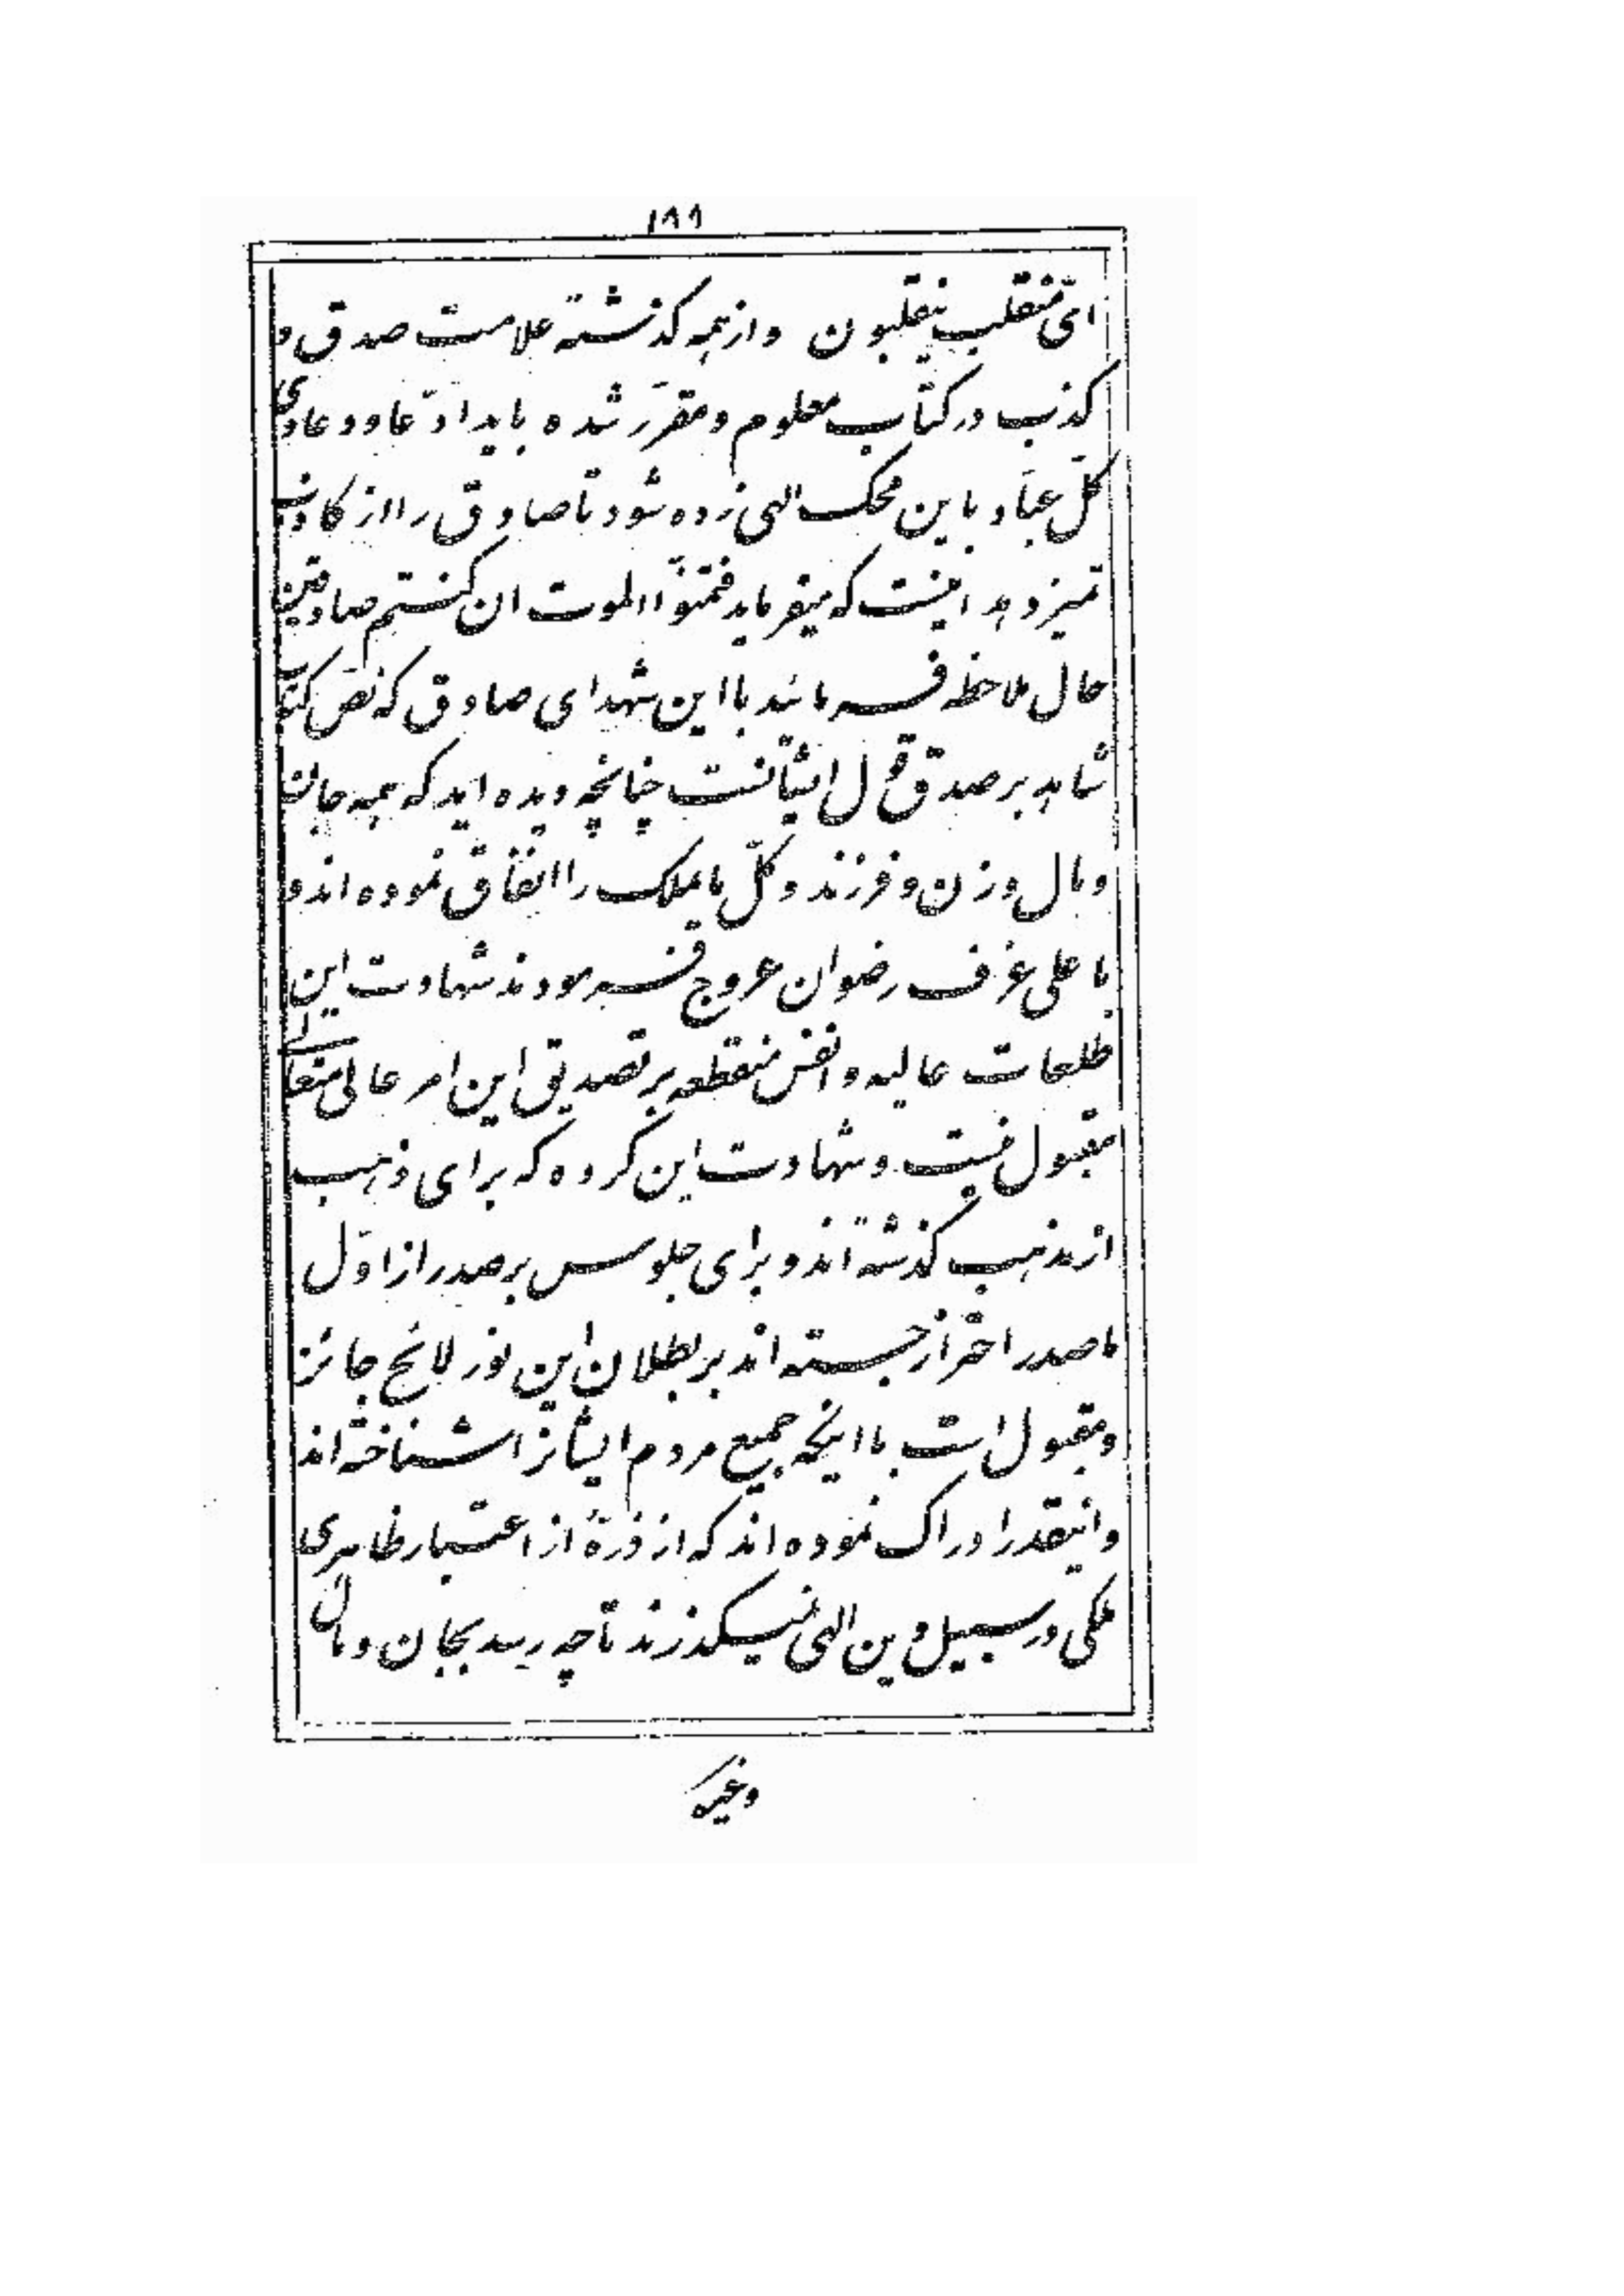 ۱۸۹
ایّ منقلب ینقلبون و از همه گذشته علامت صدق و
کذب در کتاب معلوم و مقرّر شده باید ادّعا و دعاوی
کلّ عباد باین محک الهی زده شود تا صادق را از کاذب
تمیز دهد اینست که میفرماید فتمنّوا الموت ان کنتم صادقین
حال ملاحظه فرمائید با این شهدای صادق که نصّ کتاب
شاهد بر صدق قول ایشانست چنانچه دیده اید که همه جان
و مال و زن و فرزند و کلّ مایملک را انفاق نموده اند و
باعلی غرف رضوان عروج فرمودند شهادت این
طلعات عالیه و انفس منقطعه بر تصدیق این امر عالی متعالی
مقبول نیست و شهادت این گروه که برای ذهب
از مذهب گذشته اند و برای جلوس بر صدر از اوّل
ما صدر احتراز جسته اند بر بطلان این نور لائح جائز
و مقبول است با اینکه جمیع مردم ایشانرا شناخته اند
و اینقدر ادراک نموده اند که از ذرّهٔ از اعتبار ظاهری
ملکی در سبیل دین الهی نمیگذرند تا چه رسد بجان و مال
و غیره